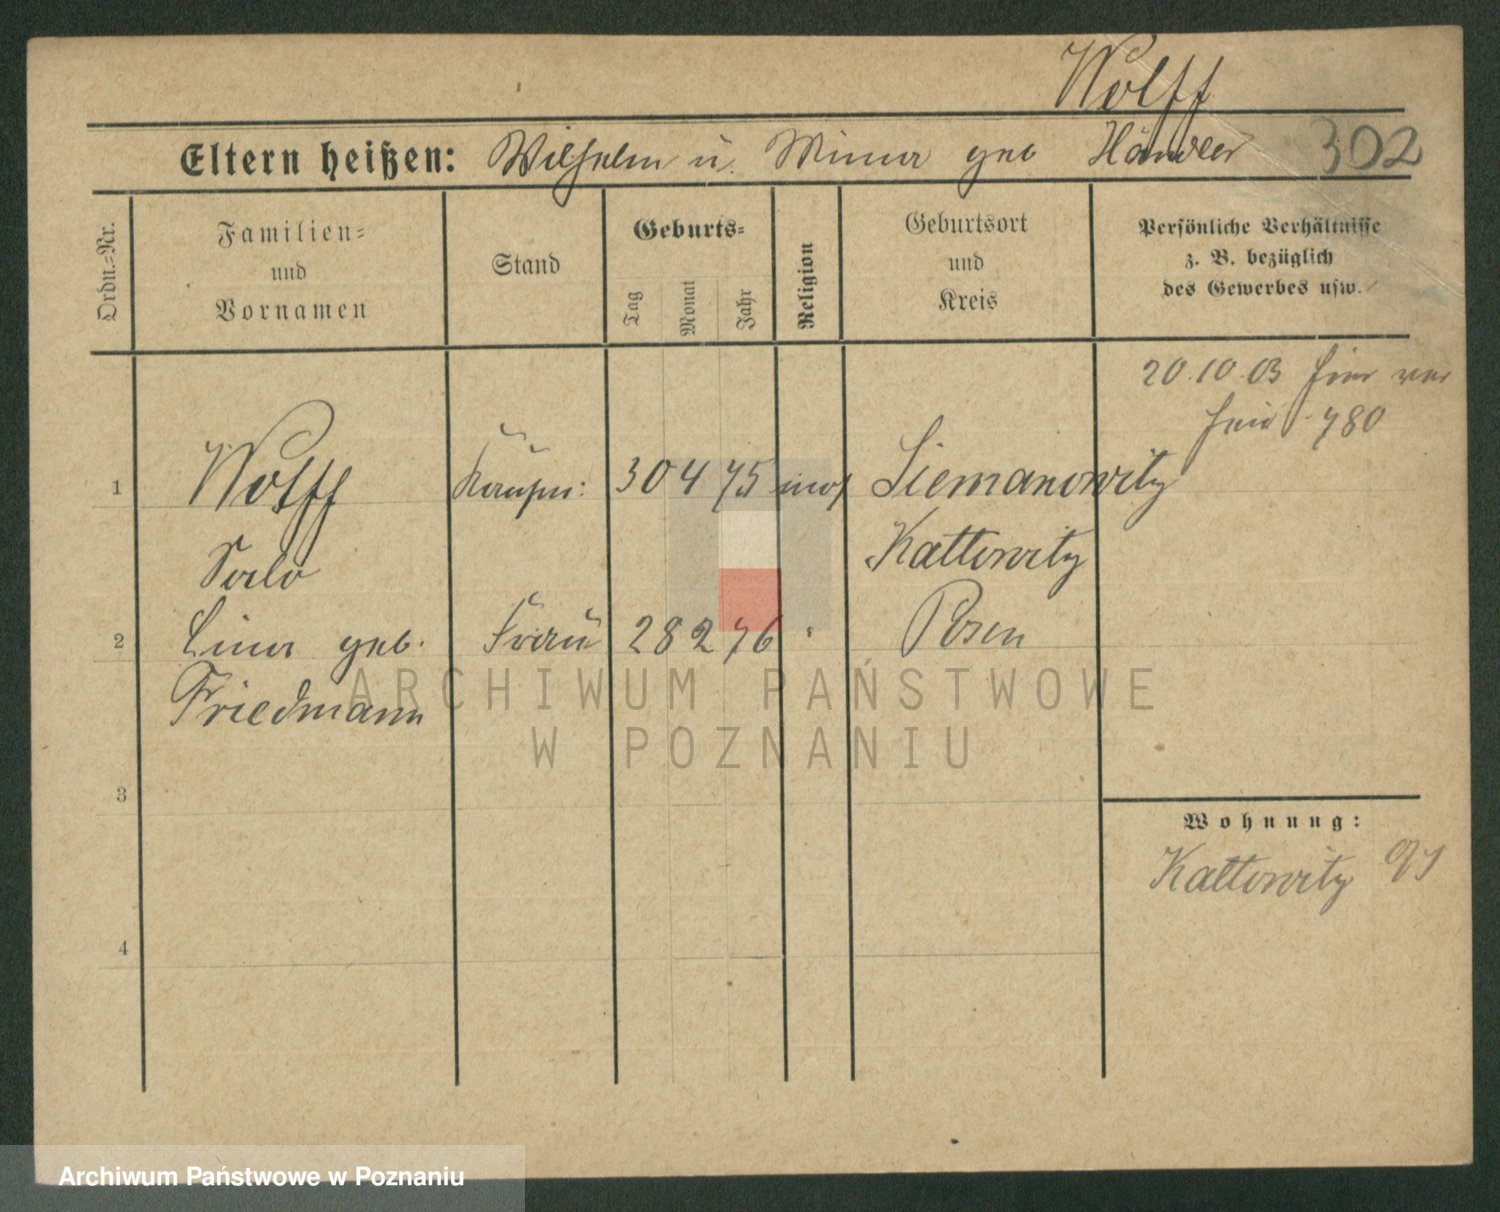 Wolff
Eltern heißen: Wilhelm u. Minna geb Händler 302
Ordn.-Nr.
Familien-
und
Vornamen
Stand
Geburts-
Tag
Monat
Jahr
Religion
Geburtsort
und
Kreis
Persönliche Verhältnisse
z. B. bezüglich
des Gewerbes usw.
20.10.03
780
1 Wolff Kaufm: 30 4 75 mos Siemanowitz
Salo Kattowitz
2 Lina geb. Frau 28 2 76 " Posen
Friedmann
3
4
Wohnung:
Kattowitz
ARCHIWUM PAŃSTWOWE
W POZNANIU
Archiwum Państwowe w Poznaniu